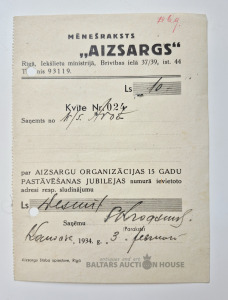 MĒNEŠRAKSTS
„AIZSARGS"
Rīgā, Iekšlietu ministrijā, Brīvības ielā 37/39, ist. 44
93119.
Ls 10.-
Kvīte Nr. 024
Saņemts no
par AIZSARGU ORGANIZĀCIJAS 15 GADU
PASTĀVĒŠANAS JUBILEJAS numurā ievietoto
adresi resp. sludinājumu
Ls Desmit
Saņēmu
Paraksts
1934. g. 3. februārī
BALTARS AUCTION HOUSE